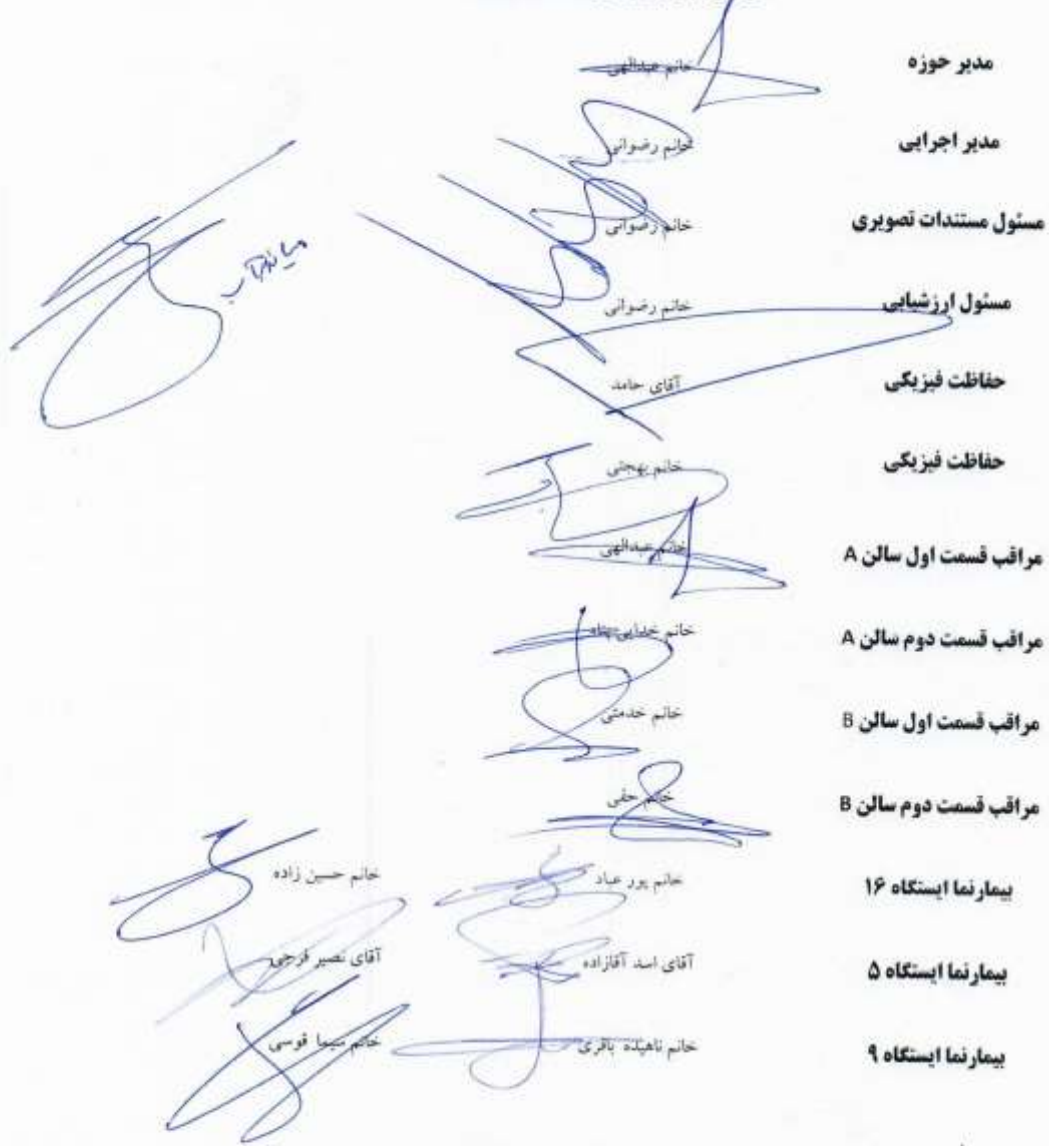 مدیر حوزه خانم عبدالهی
مدیر اجرایی خانم رضوانی
مسئول مستندات تصویری خانم رضوانی
مسئول ارزشیابی خانم رضوانی
حفاظت فیزیکی آقای حامد
حفاظت فیزیکی خانم بهجتی
مراقب قسمت اول سالن A خانم عبدالهی
مراقب قسمت دوم سالن A خانم
مراقب قسمت اول سالن B خانم خدمتی
مراقب قسمت دوم سالن B خانم حقی
بیمارنما ایستگاه ۱۶ خانم پور عباد خانم حسین زاده
بیمارنما ایستگاه ۵ آقای اسد آقازاده آقای نصیر فرجی
بیمارنما ایستگاه ۹ خانم ناهیده باقری خانم سیما قوسی